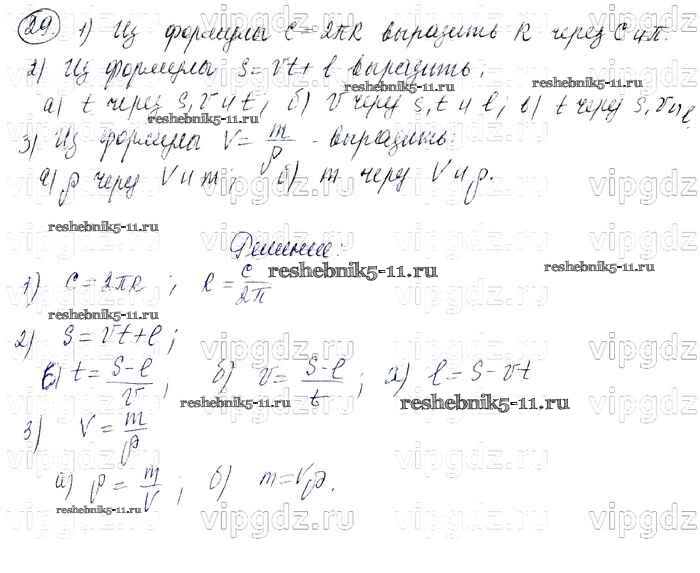 29. 1) Из формулы C = 2πR выразить R через C и π.
2) Из формулы s = vt + l выразить:
а) t через s, v и t; б) v через s, t и l; в) t через s, v и l
3) Из формулы V = m/ρ - выразить:
а) ρ через V и m; б) m через V и ρ.
Решение:
1) C = 2πR ; R = C/2π
2) s = vt + l ;
в) t = s-l/v ; б) v = s-l/t ; а) l = s - vt
3) V = m/ρ
а) ρ = m/V ; б) m = Vρ.
reshebnik5-11.ru
reshebnik5-11.ru
reshebnik5-11.ru
reshebnik5-11.ru
reshebnik5-11.ru
reshebnik5-11.ru
reshebnik5-11.ru
reshebnik5-11.ru
reshebnik5-11.ru
vipgdz.ru
vipgdz.ru
vipgdz.ru
vipgdz.ru